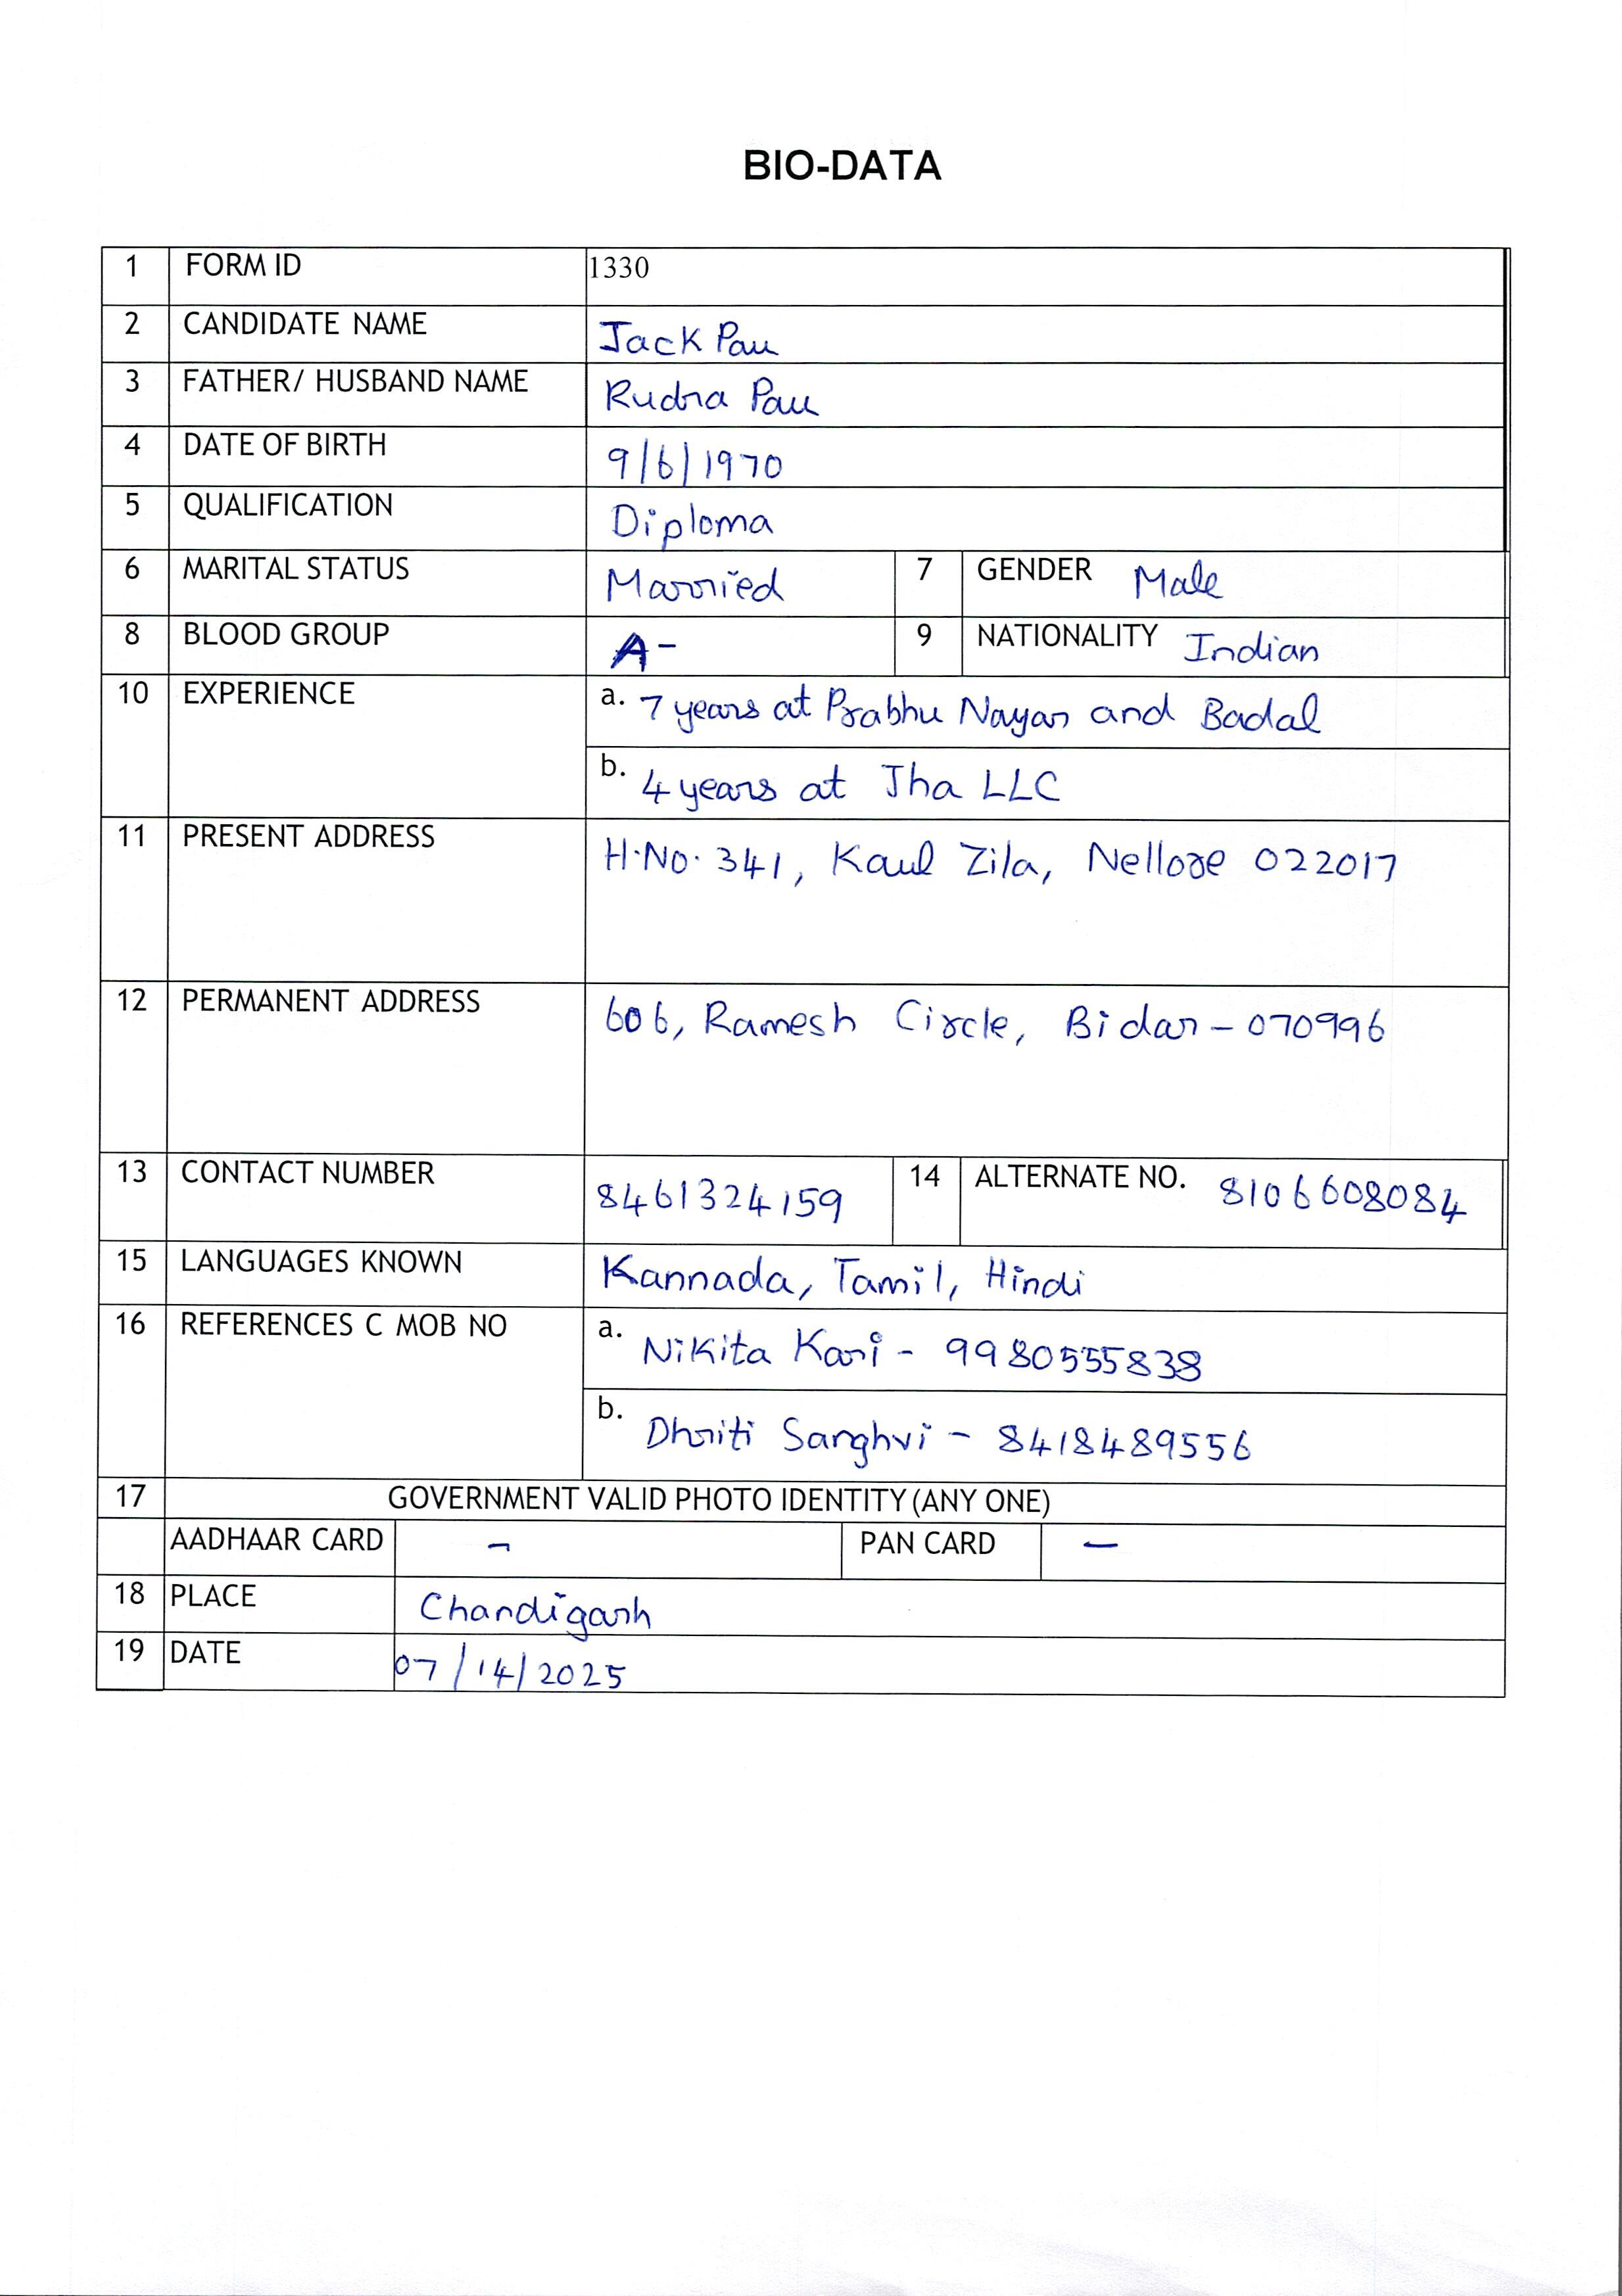 BIO-DATA
1 FORM ID 1330
2 CANDIDATE NAME Jack Pau
3 FATHER/ HUSBAND NAME Rudra Pau
4 DATE OF BIRTH 9/6/1970
5 QUALIFICATION Diploma
6 MARITAL STATUS Married 7 GENDER Male
8 BLOOD GROUP A- 9 NATIONALITY Indian
10 EXPERIENCE a. 7 years at Prabhu Nayar and Badal
b. 4 years at Jha LLC
11 PRESENT ADDRESS H.No. 341, Kaul Zila, Nellore 022017
12 PERMANENT ADDRESS 606, Ramesh Circle, Bidar - 070996
13 CONTACT NUMBER 8461324159 14 ALTERNATE NO. 8106608084
15 LANGUAGES KNOWN Kannada, Tamil, Hindi
16 REFERENCES C MOB NO a. Nikita Kari - 9980555838
b. Dhriti Sanghvi - 8418489556
17 GOVERNMENT VALID PHOTO IDENTITY (ANY ONE)
AADHAAR CARD - PAN CARD -
18 PLACE Chandigarh
19 DATE 07/14/2025